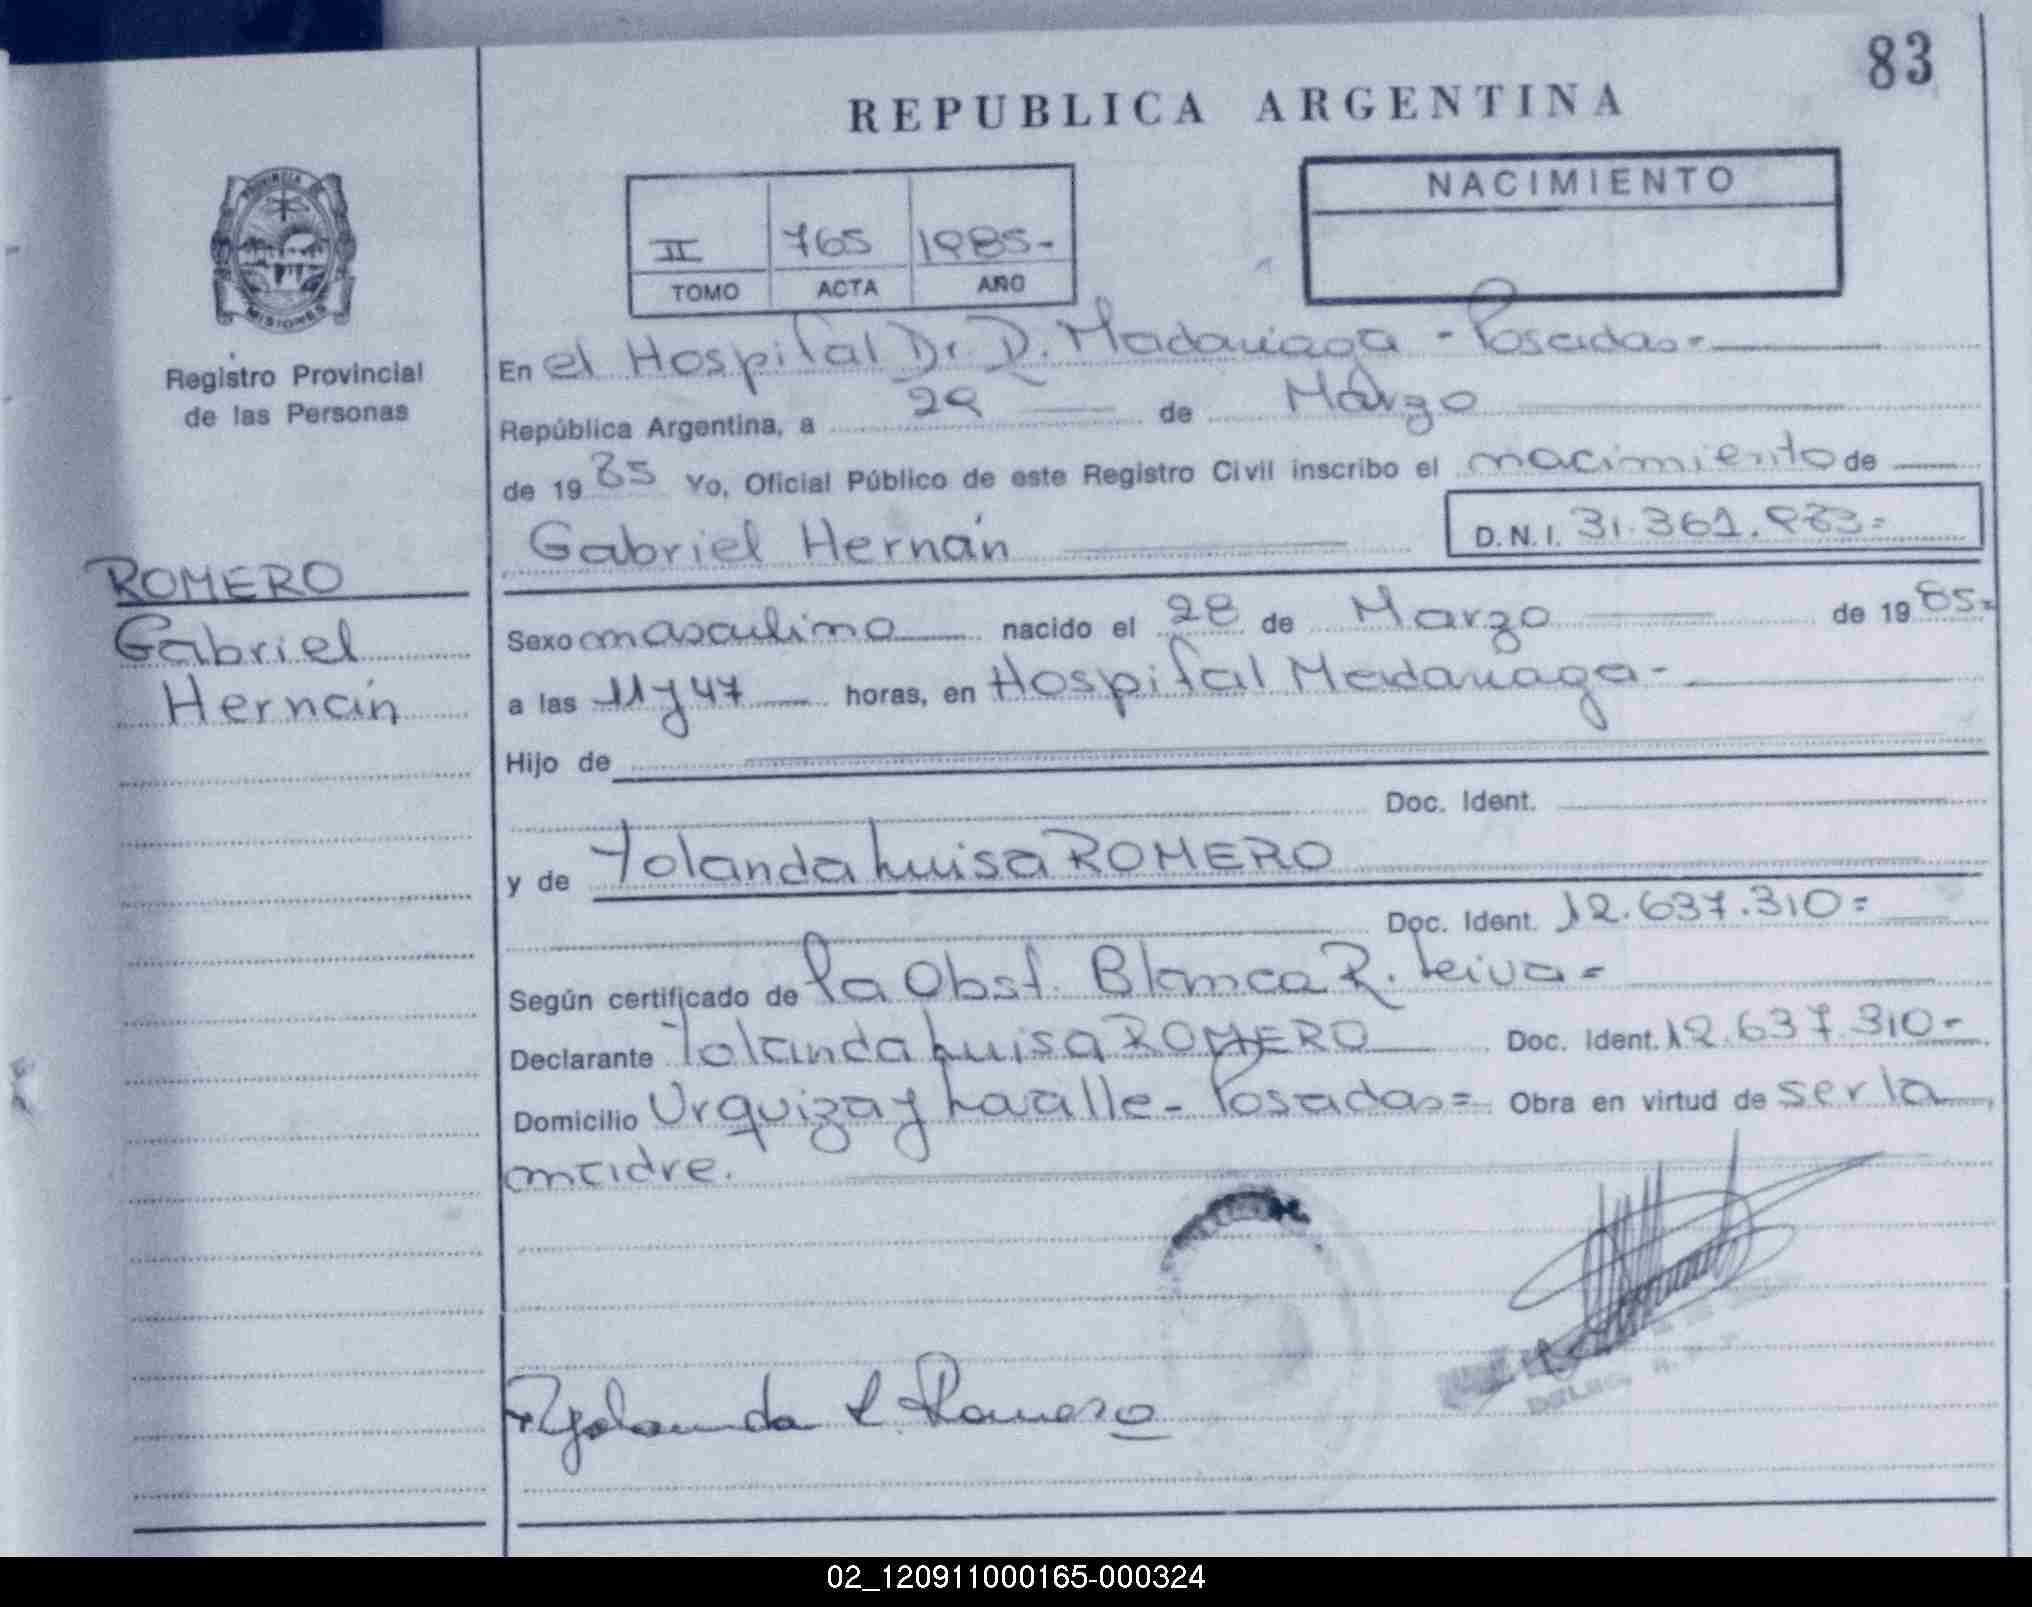 83
REPUBLICA ARGENTINA
PROVINCIA DE
MISIONES
Registro Provincial
de las Personas
II 765 1985-
TOMO ACTA AÑO
NACIMIENTO
En el Hospital Dr. D. Madariaga - Posadas=
República Argentina, a 29 de Marzo
de 1985 Yo, Oficial Público de este Registro Civil inscribo el nacimiento de
Gabriel Hernán D.N.I. 31.361.983=
ROMERO
Gabriel
Hernán
Sexo masculino nacido el 28 de Marzo de 1985=
a las 11 y 47 horas, en Hospital Madariaga-
Hijo de
Doc. Ident.
y de Yolanda Luisa ROMERO
Doc. Ident. 12.637.310=
Según certificado de la Obst. Blanca R. Leiva=
Declarante Yolanda Luisa ROMERO Doc. Ident. 12.637.310-
Domicilio Urquiza y Lavalle- Posadas= Obra en virtud de ser la
madre.
Yolanda L. Romero
02_120911000165-000324